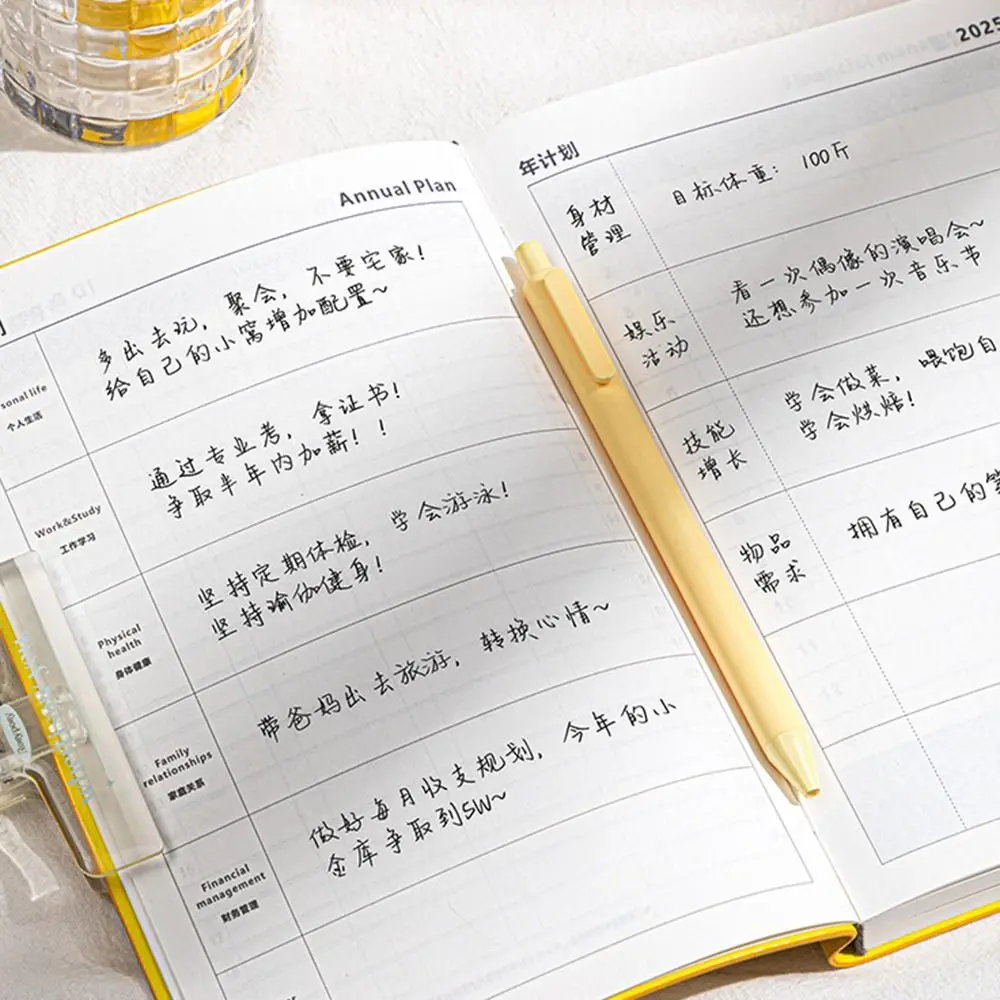 Annual Plan
sonal life
个人生活
多出去玩，聚会，不要宅家！
给自己的小窝增加配置~
Work&Study
工作学习
通过专业考，拿证书！
争取半年内加薪！！
Physical
health
身体健康
坚持定期体检，学会游泳！
坚持瑜伽健身！
Family
relationships
家庭关系
带爸妈出去旅游，转换心情~
Financial
management
财务管理
做好每月收支规划，今年的小
金库争取到5W~
年计划
2025
身材
管理
目标体重：100斤
娱乐
活动
看一次偶像的演唱会~
还想参加一次音乐节
技能
增长
学会做菜，喂饱自
学会烘焙！
物品
需求
拥有自己的